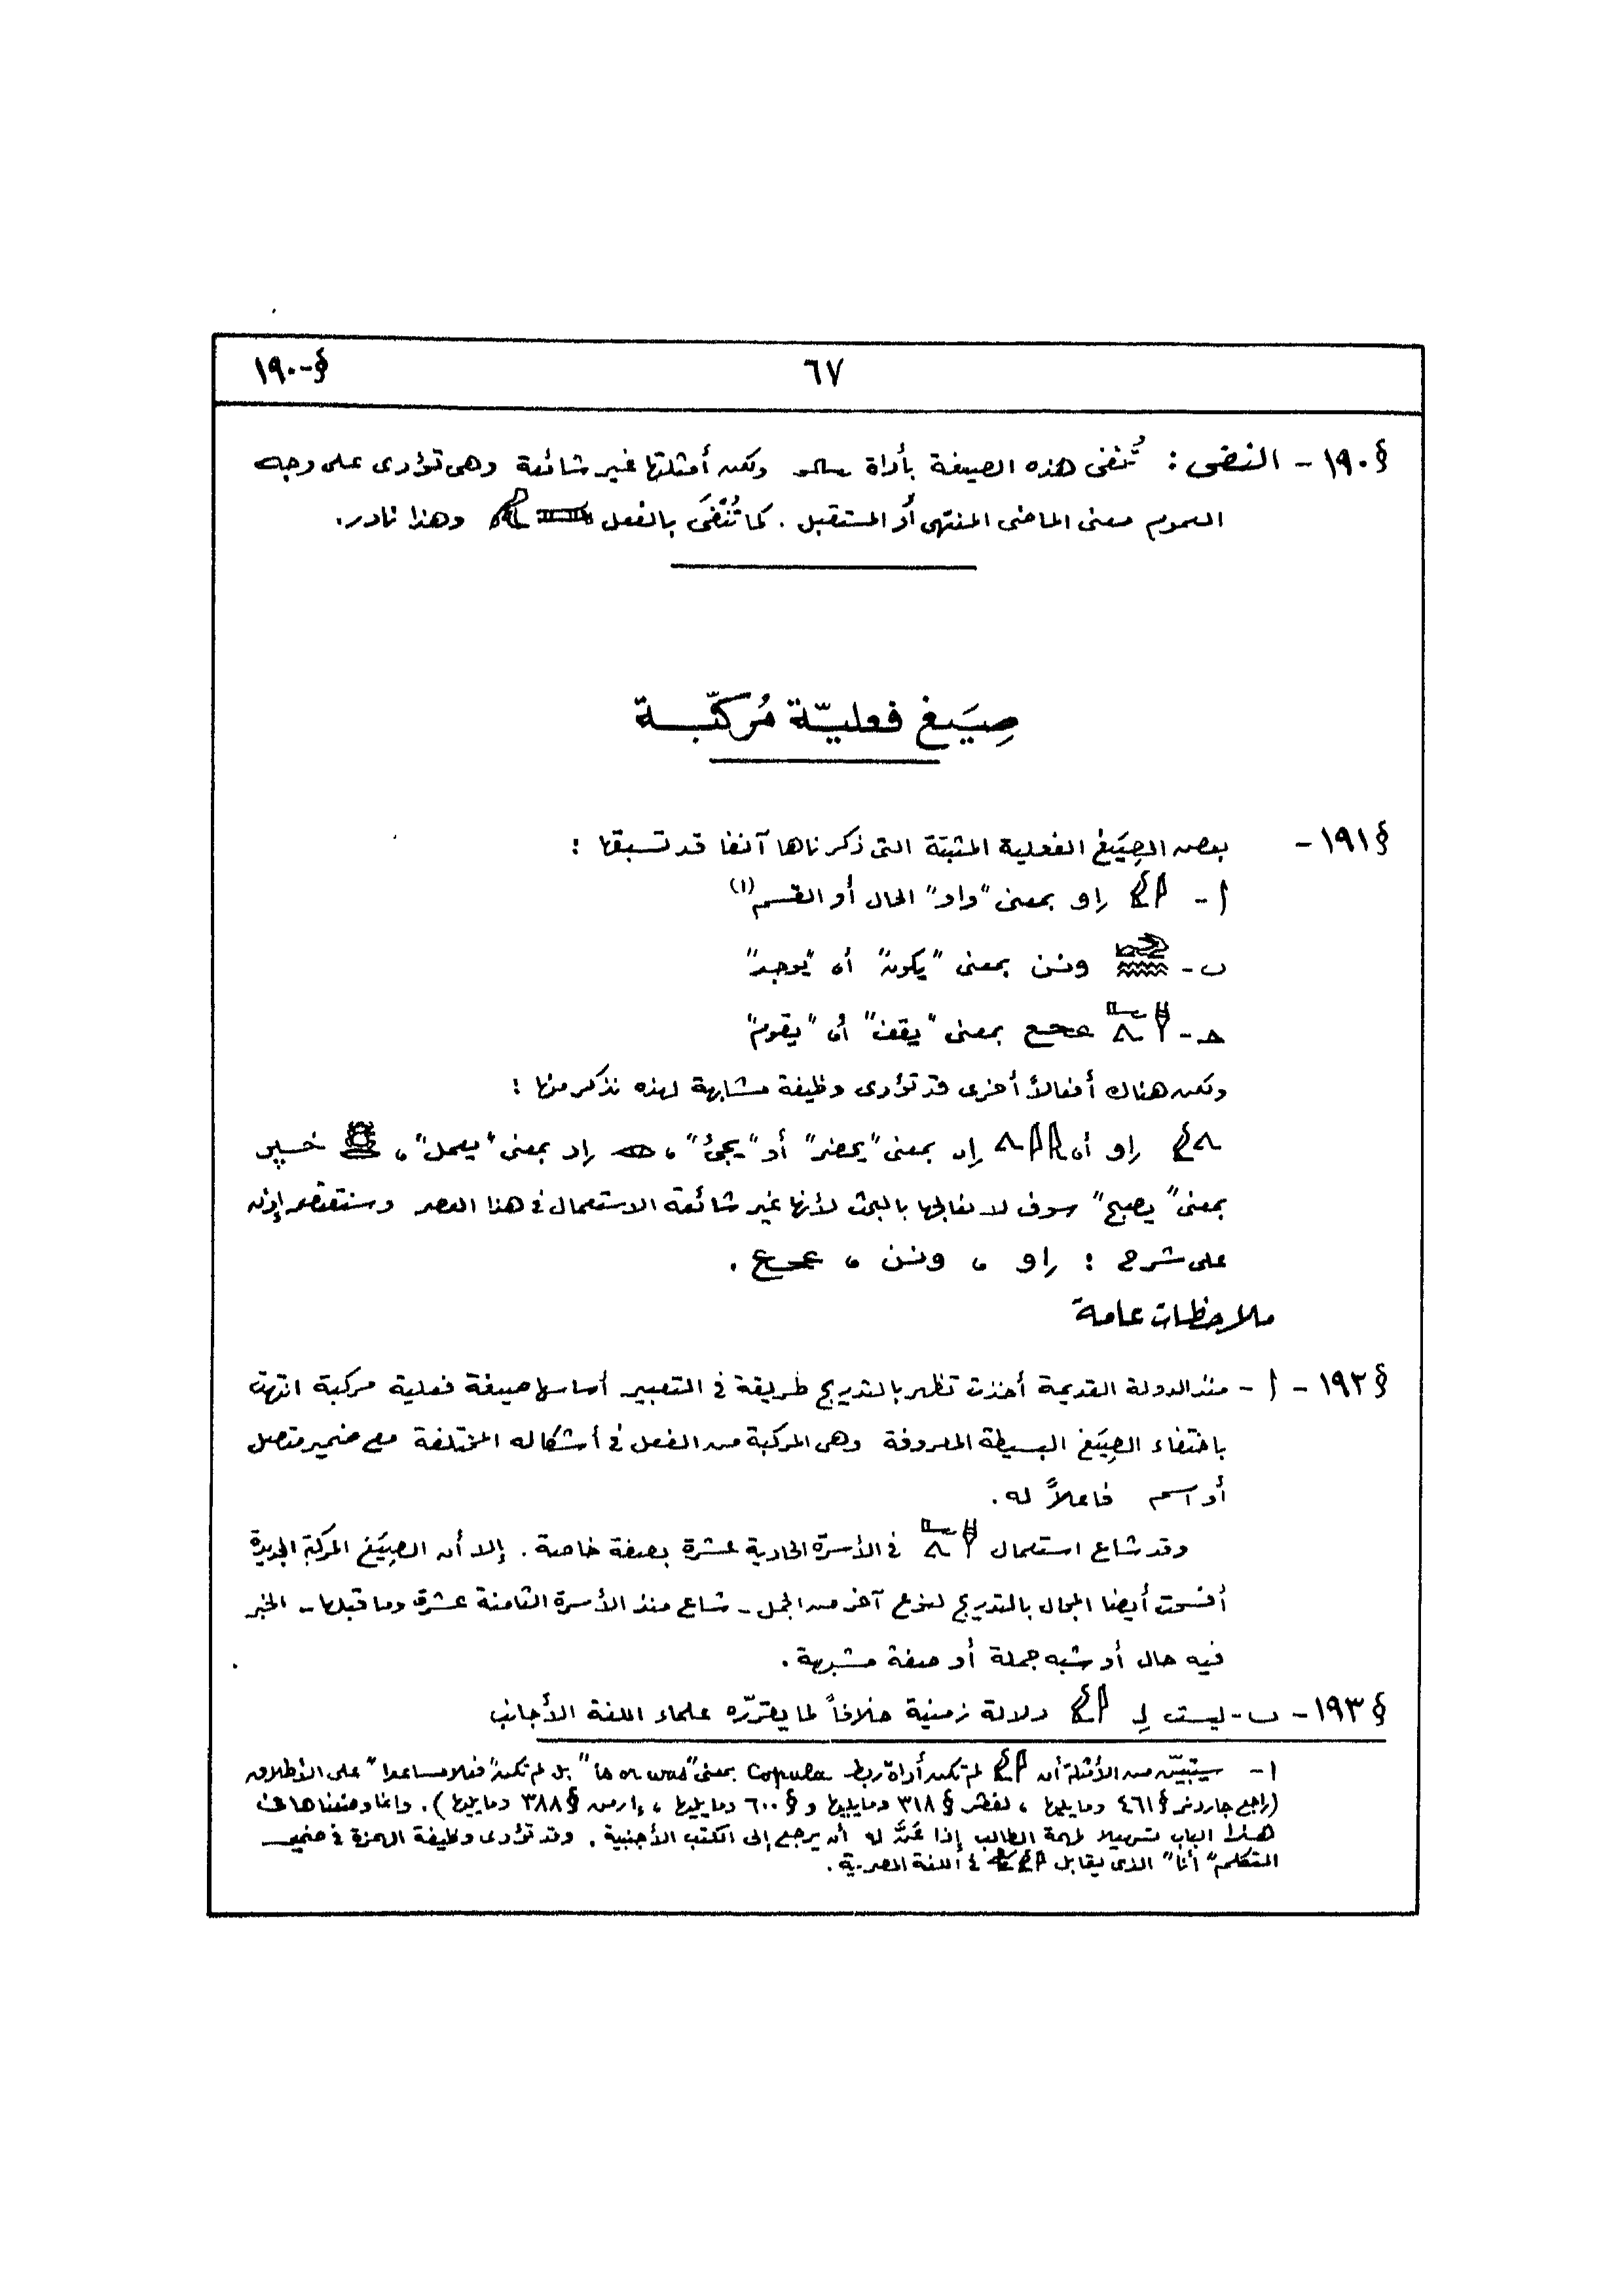 §-١٩٠
٦٧
§١٩٠- النفى : تُنفى هذه الصيغة بأداة ولكن أمثلتها غير شائعة وهى تؤدى على وجه
العموم معنى الماضى المنتهى أو المستقبل . كما تُنْفَى بالفعل وهذا نادر.
صِيَغ فعليّة مُركّبة
§١٩١- بعض الصِيَغ الفعلية المثبتة التى ذكرناها آنفا قد تسبقها :
أ- 𓇋𓅱 إو بمعنى "واو" الحال أو القسم(١)
ب- 𓃹𓈖𓈖 ونن بمعنى "يكون" أو "يوجد"
ح- 𓊢𓂝 عحع بمعنى "يقف" أو "يقوم"
ولكن هناك أفعالاً أخرى قد تؤدى وظيفة مشابهة لهذه نذكر منها :
إو أو إى بمعنى "يحضر" أو "يجئ" ، 𓁹 إر بمعنى "يعمل" ، 𓆣 خپر
بمعنى "يصبح" سوف لا نعالجها بالبحث لأنها غير شائعة الاستعمال فى هذا العصر وسنقتصر إذن
على شرح : إو ، ونن ، عحع .
ملاحظات عامة
§١٩٢- أ- منذ الدولة القديمة أخذت تظهر بالتدريج طريقة فى التعبير أساسها صيغة فعلية مركبة انتهت
باختفاء الصِيَغ البسيطة المعروفة وهى المركبة من الفعل فى أشكاله المختلفة مع ضمير متصل
أو اسم فاعلاً له .
وقد شاع استعمال 𓊢𓂝 فى الأسرة الحادية عشرة بصفة خاصة . إلا أن الصِيَغ المركبة الجديدة
أفسحت أيضا المجال بالتدريج لنوع آخر من الجمل - شاع منذ الأسرة الثامنة عشرة وما قبلها - الخبر
فيه حال أو شبه جملة أو صفة مشبهة .
§١٩٣- ب- ليست لِـ 𓇋𓅱 دلالة زمنية خلافاً لما يقرّره علماء اللغة الأجانب
١- سيتبيّن من الأمثلة أن 𓇋𓅱 لم تكن أداة ربط Copula بمعنى "is or was" بل لم تكن "فعلا مساعدا" على الإطلاق
(راجع جاردنر §٤٦١ وما يليها ، لفڤر §٣١٨ وما يليها و §٦٠٠ وما يليها ، إرمن §٣٨٨ وما يليها ) . وانما وضعناها فى
هذا الباب تسهيلا لمهمة الطالب إذا عَنَّ له أن يرجع إلى الكتب الأجنبية . وقد تؤدى وظيفة الهمزة فى ضمير
المتكلم "أنا" الذى يقابل فى اللغة المصرية .